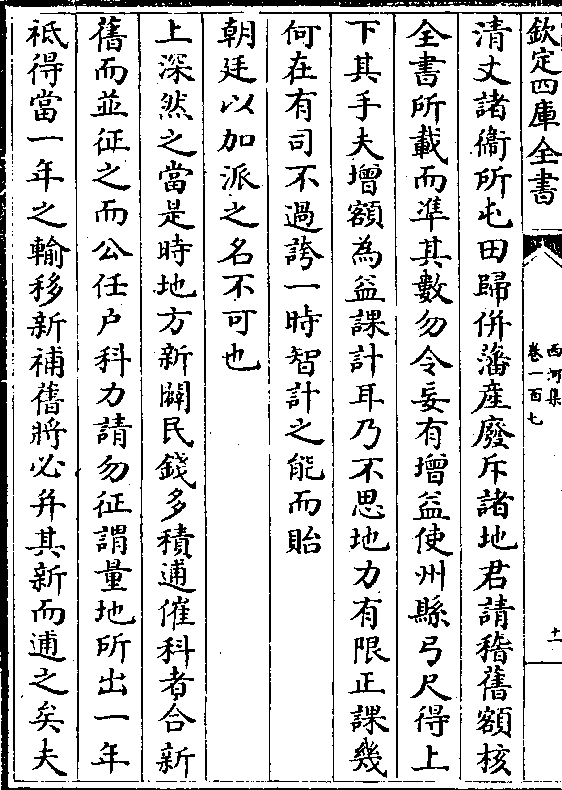 欽定四庫全書
西河集
卷一百七
十一
清丈諸衛所屯田歸併藩産廢斥諸地君請稽舊額核
全書所載而準其數勿令妄有增益使州縣弓尺得上
下其手夫增額為益課計耳乃不思地力有限正課幾
何在有司不過誇一時智計之能而貽
朝廷以加派之名不可也
上深然之當是時地方新闢民錢多積逋催科者合新
舊而並征之而公任户科力請勿征謂量地所出一年
祇得當一年之輸移新補舊將必并其新而逋之矣夫